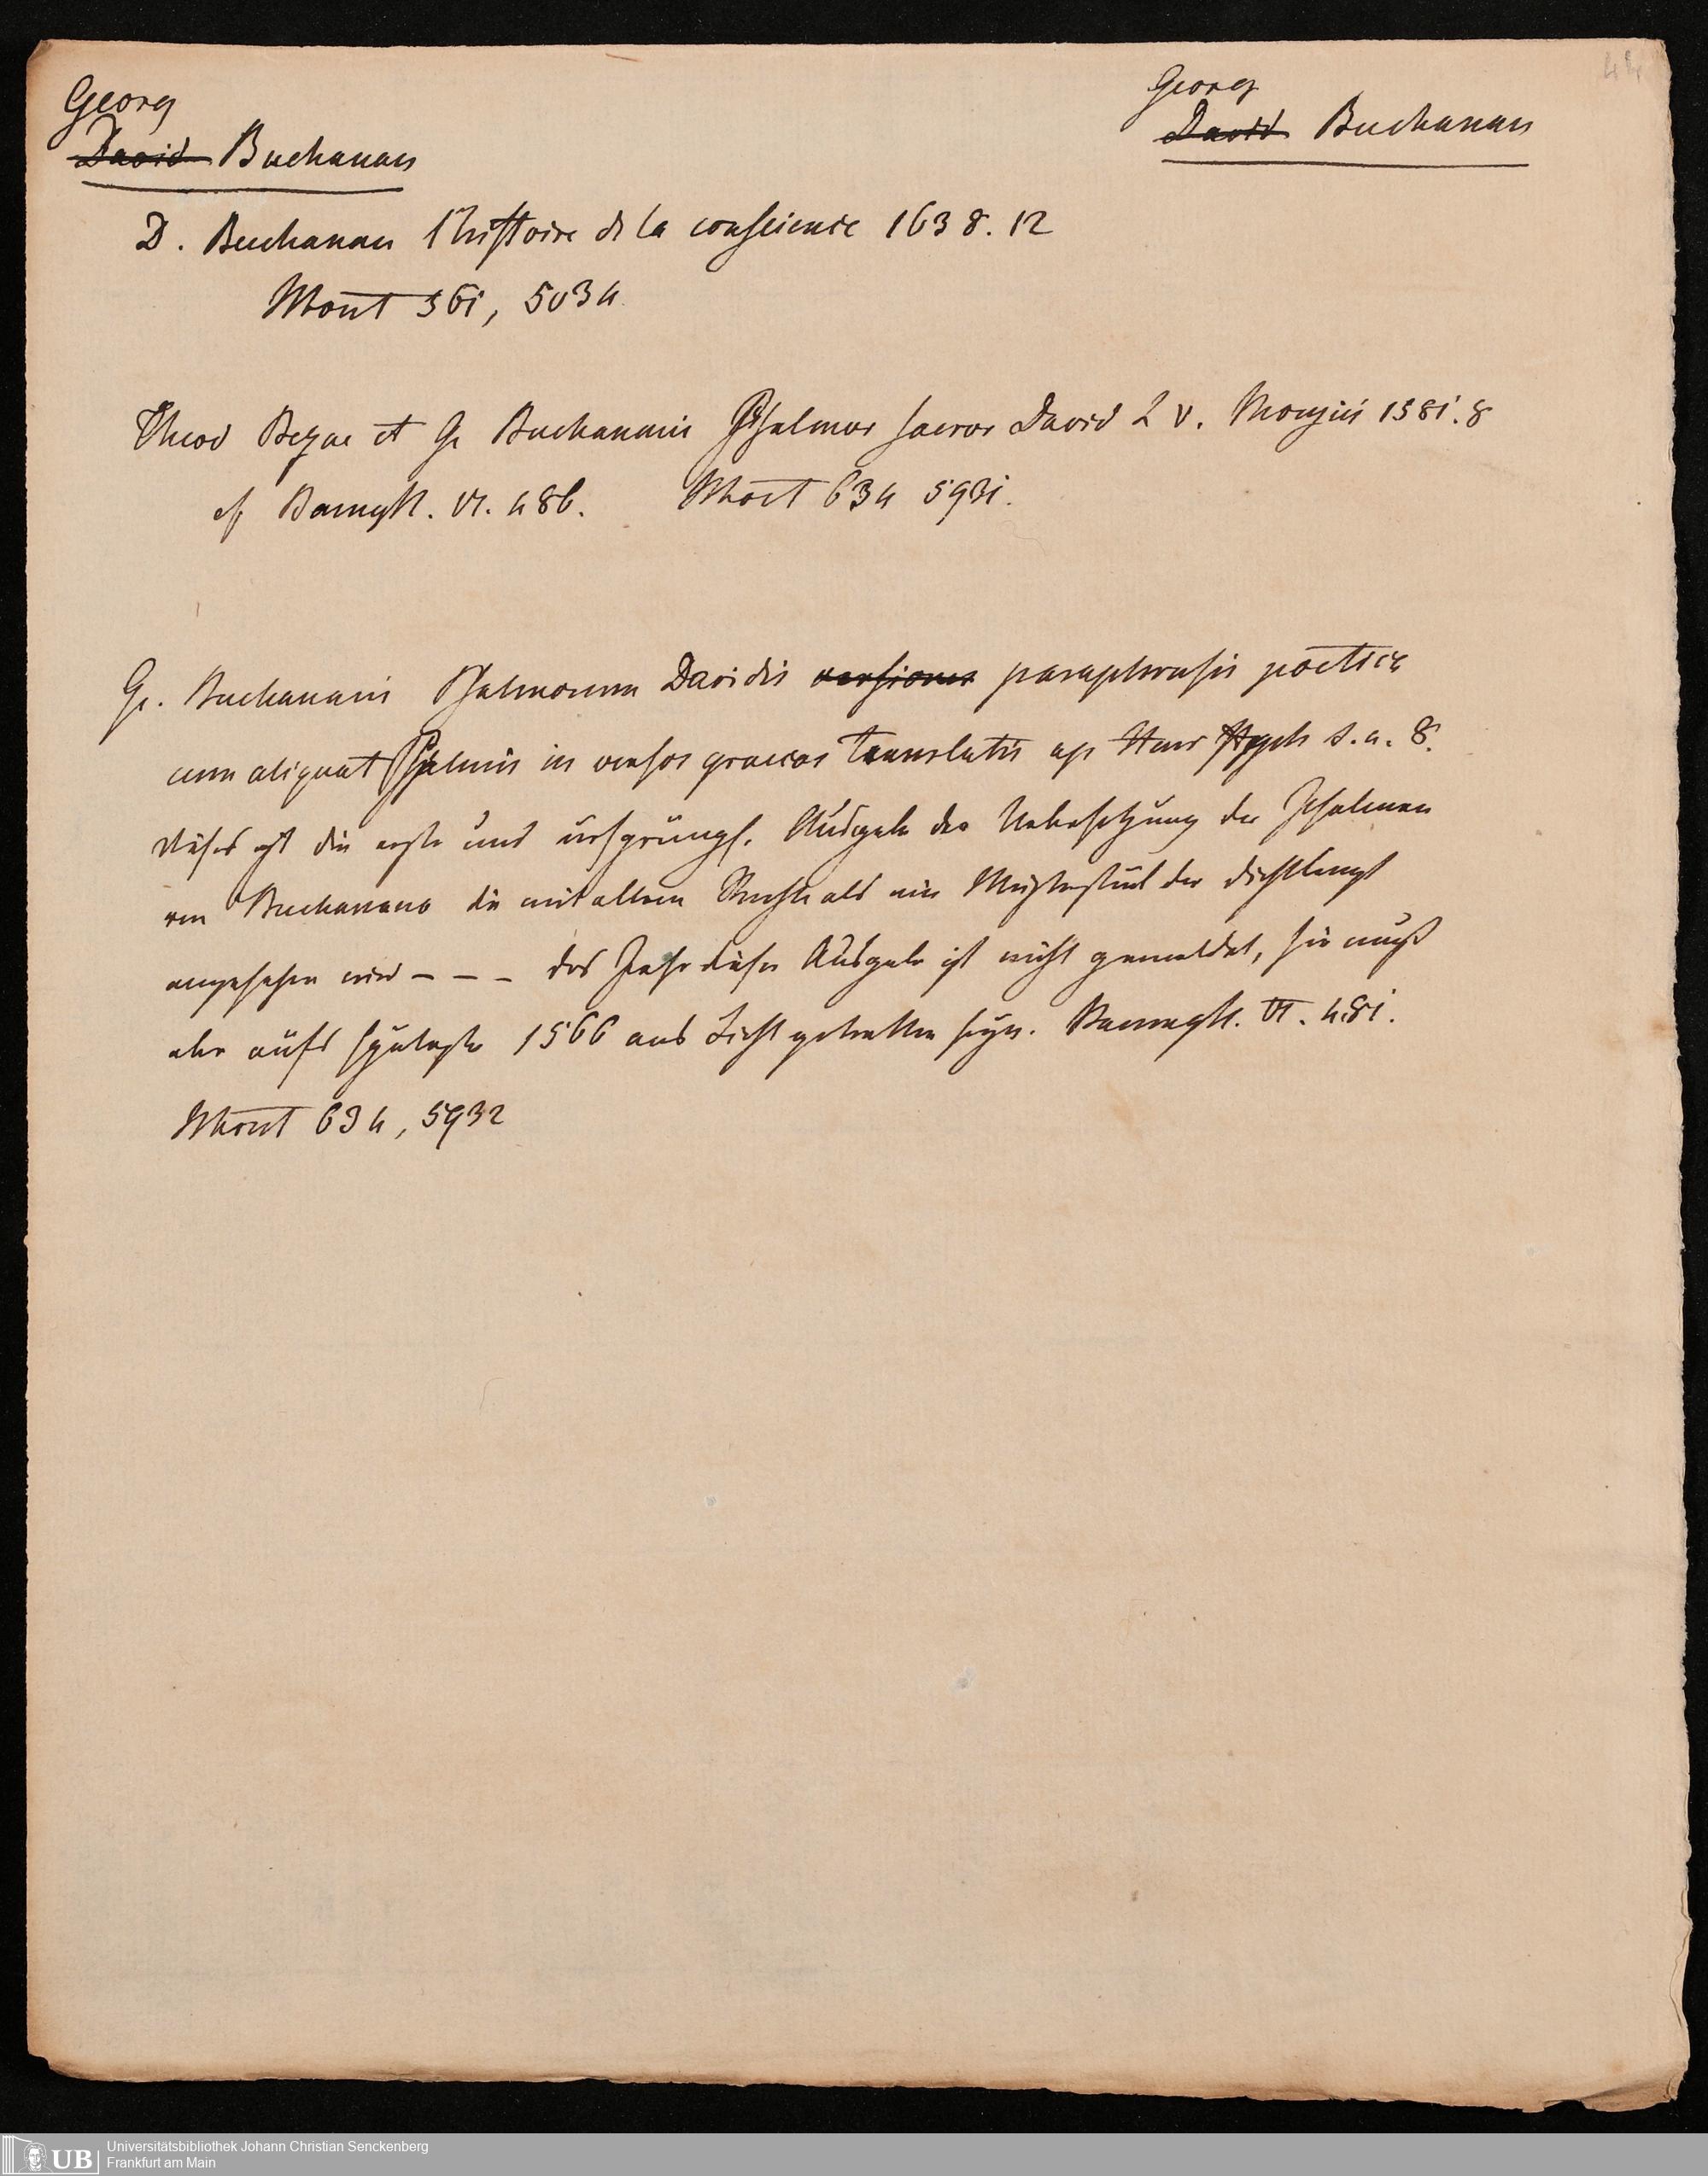 Georg
David Buchanan
Georg
David Buchanan
D. Buchanan l'histoire de la conscience 1638. 12
Mont 361, 5034
Theod Bezae et G Buchanani Psalmor sacror David L V. Morgiis 1581. 8
cf Baumgt. VI. 486. Mont 634 5931.
G. Buchanani Psalmorum Davidis versiones paraphrasis poetica
cum aliquat Psalmis in versos graecos translatis ap Henr Steph s. a. 8.
Dieses ist die erste und ursprüngl. Ausgabe der Uebersetzung der Psalmen
von Buchanano die mit allem Rechte als ein Meisterstück der Dichtkunst
angesehen wird - - - das Jahr dieser Ausgabe ist nicht gemeldet, sie muß
aber aufs späteste 1566 ans Licht getretten seyn. Baumgt. VI. 481.
Mont 634, 5932
Universitätsbibliothek Johann Christian Senckenberg
Frankfurt am Main
UB